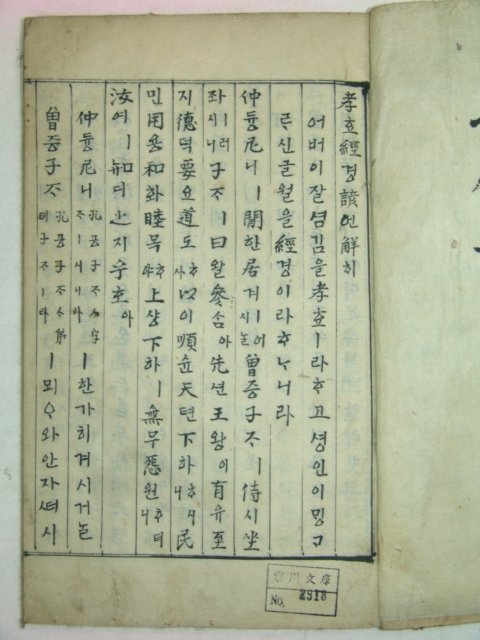 孝효經경諺언解히
어버이잘셤김을孝효ㅣ라ᄒᆞ고셩인이ᄆᆡᆼᄀᆞ
ᄅᆞ신글월을經경이라ᄒᆞᄂᆞ니라
仲듕尼니ㅣ閒한居거ㅣ어시ᄂᆞᆯ曾증子ᄌᆞㅣ侍시坐
좌ㅣ러시니子ᄌᆞㅣ曰왈參ᄉᆞᆷ아先션王왕이有유至
지德덕要요道도ᄒᆞ샤以이順슌天텬下하ᄒᆞ시니民
민用용和화睦목ᄒᆞ야上샹下하ㅣ無무怨원ᄒᆞ더니
汝여ㅣ知디之지乎호아
仲듕尼니孔공子ᄌᆞㅅ字ᄌᆞㅣ시니라ㅣ한가히겨시거ᄂᆞᆯ
曾증子ᄌᆞ孔공子ᄌᆞㅅ弟뎨子ᄌᆞㅣ라ㅣ뫼ᄋᆞ와안자ᄯᅥ시
川文庫
No. 2918